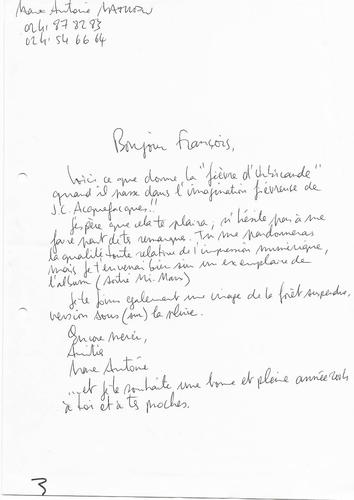 Marc Antoine MATHIEU
0241 87 82 83
0241 54 66 64
Bonjour François,
Voici ce que donne la "fièvre d'Urbicande"
quand il passe dans l'imagination fiévreuse de
J.C. Acquefacques!!
J'espère que cela te plaira, n'hésite pas à me
faire part de tes remarques. Tu me pardonneras
la qualité toute relative de l'impression numérique,
mais je t'enverrai bien sûr un exemplaire de
l'album (sortie Mi-Mars)
Je te joins également une image de la forêt suspendue,
version sous (sur) la pluie.
Encore merci,
Amitiés
Marc Antoine
...et je te souhaite une bonne et pleine année 2004
à toi et à tes proches.
3